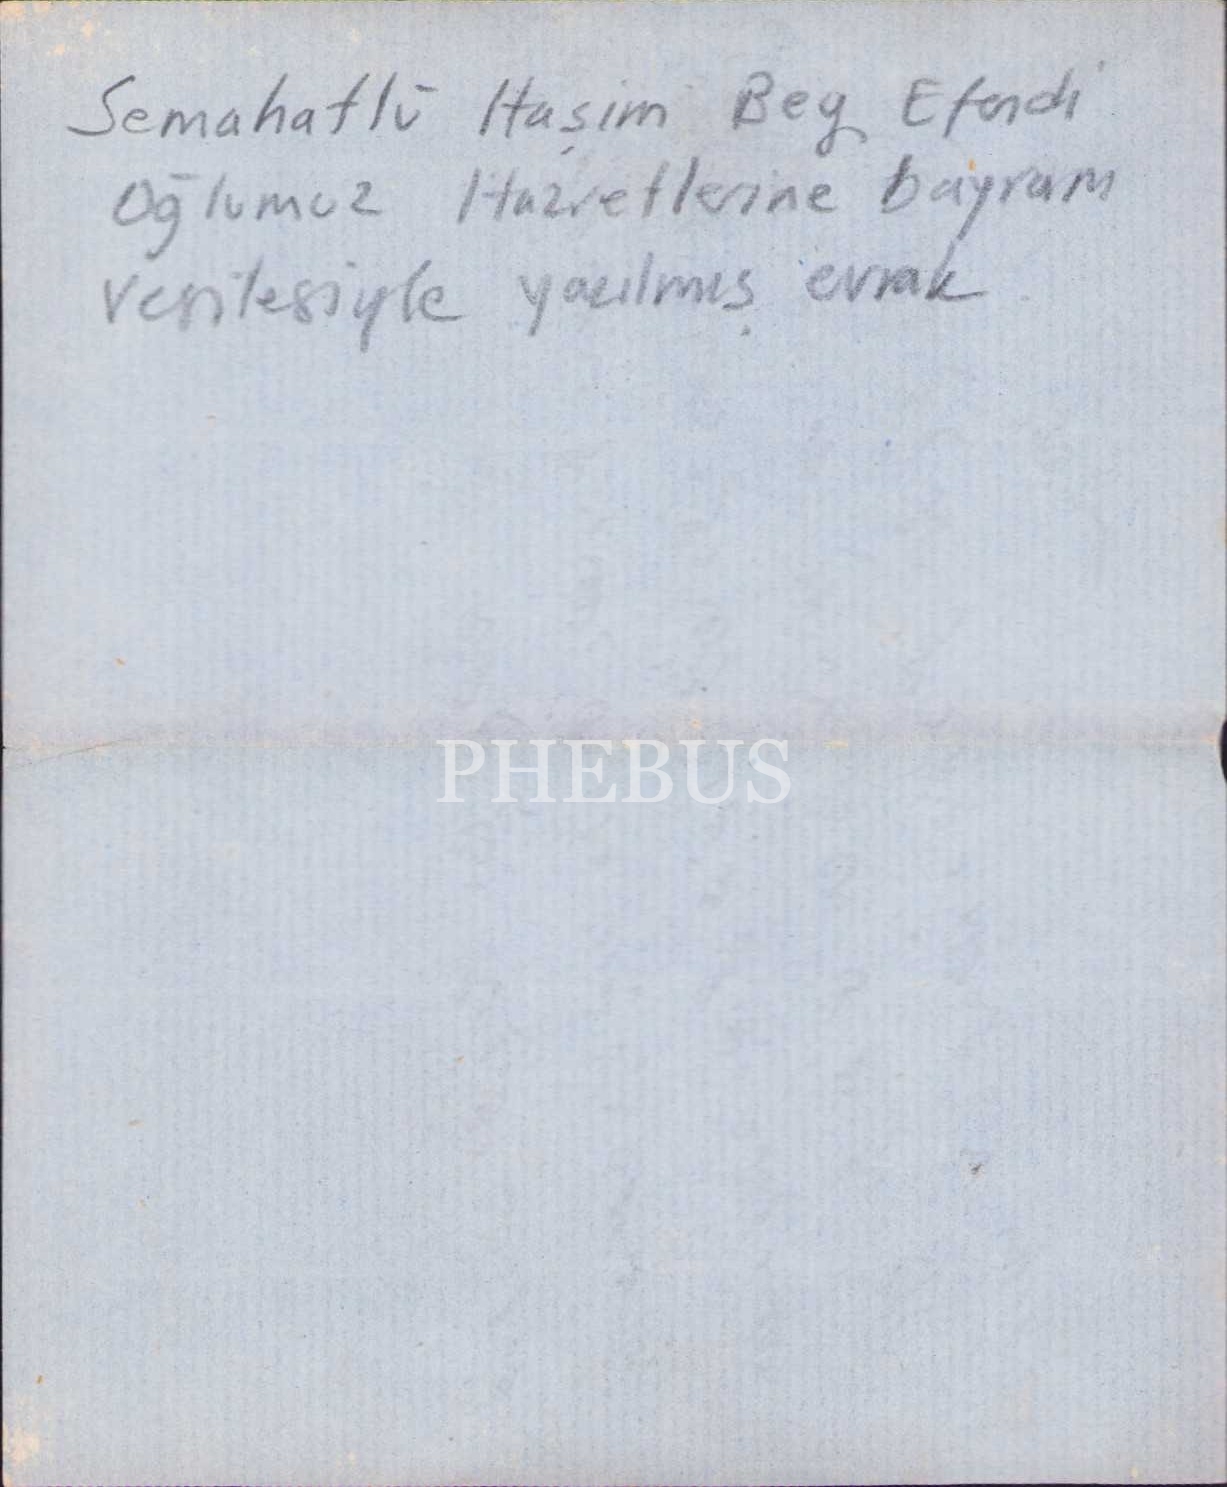 Semahatlü Haşim Beg Efendi
Oğlumuz Hazretlerine bayram
vesilesiyle yazılmış evrak
PHEBUS